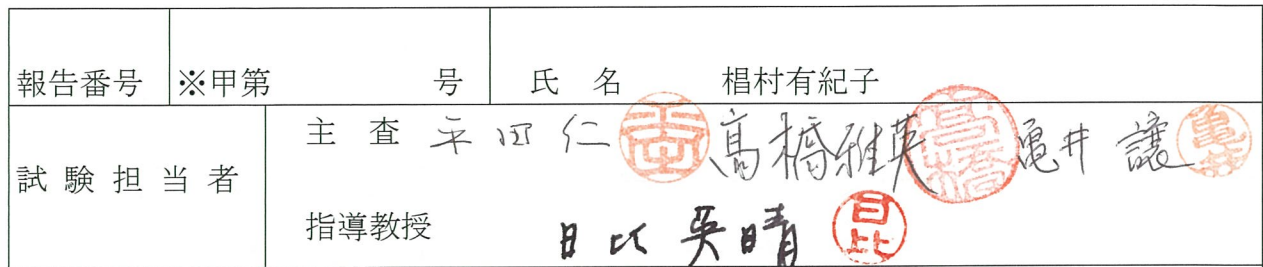 報告番号 ※甲第 号 氏 名 椙村有紀子
試 験 担 当 者
主 査 平田仁 髙橋雅英 亀井 譲
指導教授 日比英晴 日比